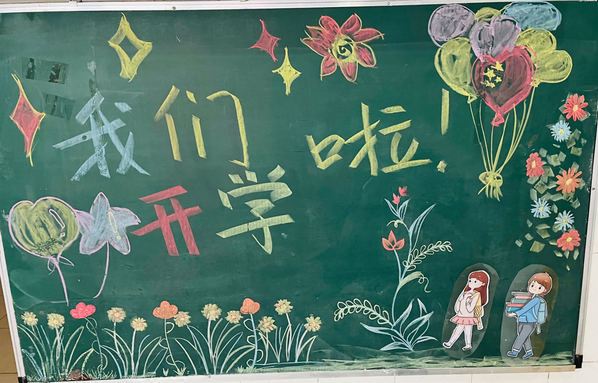 我们
开学
啦!